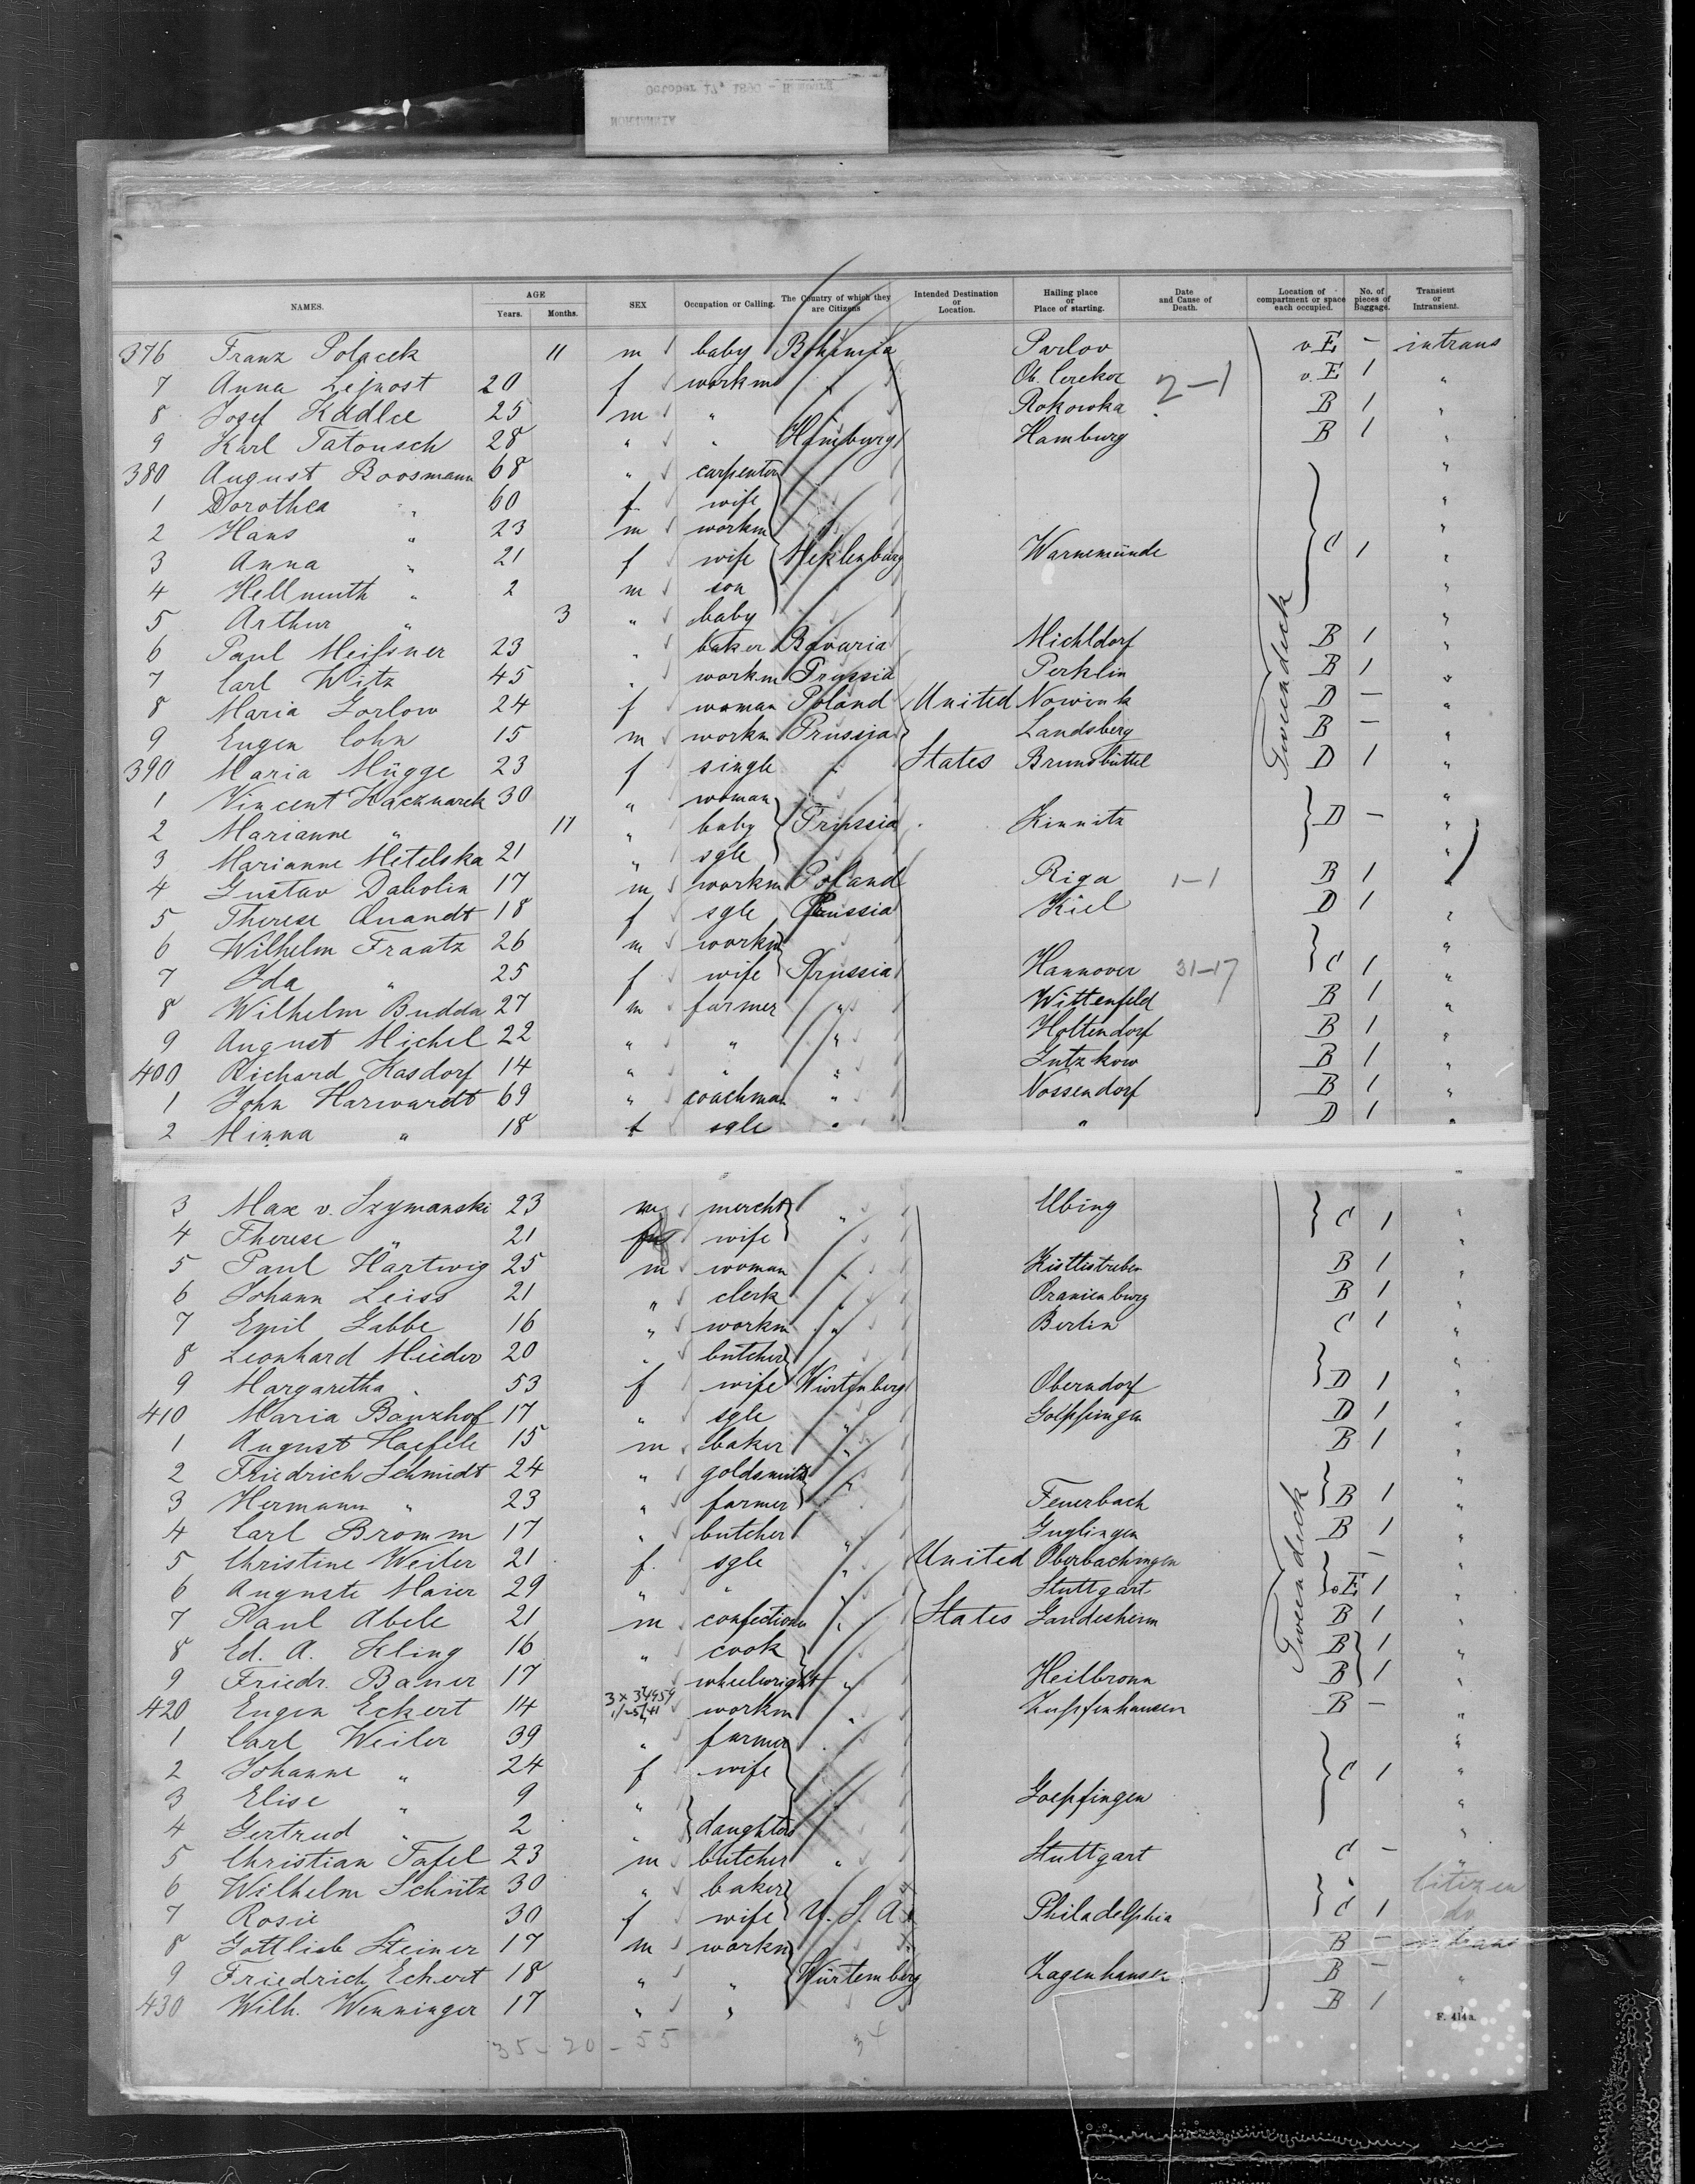 October 17, 1890 - Hamburg
NORMANNIA
NAMES. AGE Years. Months. SEX Occupation or Calling. The Country of which they are Citizens Intended Destination or Location. Hailing place or Place of starting. Date and Cause of Death. Location of compartment or space each occupied. No. of pieces of Baggage. Transient or Intransient.
376 Franz Polacek 11 m baby Bohemia Parlov v. E — intrans
7 Anna Lejnost 20 f workm " Ob. Cerekve 2-1 v. E 1 "
8 Josef Kadlce 25 m " Rokowka B 1 "
9 Karl Tatousch 28 " " Hamburg Hamburg B 1 "
380 August Boosmann 68 " carpenter "
1 Dorothea " 60 f wife "
2 Hans " 23 m workm "
3 Anna " 21 f wife Meklenburg Warnemünde C 1 "
4 Hellmuth " 2 m son "
5 Arthur " 3 " baby "
6 Paul Meissner 23 " baker Bavaria Michldorf B 1 "
7 Carl Witz 45 " workm Prussia Perklin B 1 "
8 Maria Gorlow 24 f woman Poland United Nowink D — "
9 Eugen Cohn 15 m workm Prussia Landsberg B — "
390 Maria Mügge 23 f single " States Brunsbüttel D 1 "
1 Vincent Kacznarek 30 " woman "
2 Marianne " 11 " baby Prussia Kinnitz D — "
3 Marianne Metelska 21 " sgle "
4 Gustav Dabolin 17 m workm Poland Riga 1-1 B 1 "
5 Therese Quandt 18 f sgle Prussia Kiel D 1 "
6 Wilhelm Fraatz 26 m workm "
7 Ida " 25 f wife Prussia Hannover 31-17 C 1 "
8 Wilhelm Budda 27 m farmer " Wittenfeld B 1 "
9 August Michel 22 " " " Holtendorf B 1 "
400 Richard Kasdorf 14 " " " Jutzkow B 1 "
1 John Harwardt 69 " coachman " Nossendorf B 1 "
2 Minna " 18 f sgle " " D 1 "
Tweendeck
3 Max v. Szymanski 23 m mercht " Elbing C 1 "
4 Therese " 21 f wife "
5 Paul Hartwig 25 m woman " B 1 "
6 Johann Leiss 21 " clerk " Oranienburg B 1 "
7 Emil Gabbe 16 " workm " Berlin C 1 "
8 Leonhard Mieder 20 " butcher "
9 Margaretha " 53 f wife Würtenberg Oberndorf D 1 "
410 Maria Banzhof 17 " sgle " Goeppingen D 1 "
1 August Haefele 15 m baker " B 1 "
2 Friedrich Schmidt 24 " goldsmith " "
3 Hermann " 23 " farmer Feuerbach B 1 "
4 Carl Bromm 17 " butcher " Guglingen B 1 "
5 Christine Weiler 21 f. sgle " United Oberbachingen — "
6 Auguste Maier 29 " " " Stuttgart v E 1 "
7 Paul Abele 21 m confectioner " States Gandesheim B 1 "
8 Ed. A. Kling 16 " cook B 1 "
9 Friedr. Bauer 17 wheelwright " Heilbronn B 1 "
420 Eugen Eckert 14 3x34959 1/25/41 " workm " Zuffenhausen B — "
1 Carl Weiler 39 " farmer "
2 Johanne " 24 f wife C 1 "
3 Elise " 9 " Goeppingen "
4 Gertrud " 2 " daughters "
5 Christian Tafel 23 m butcher " Stuttgart C — "
6 Wilhelm Schütz 30 " baker citizen
7 Rosie 30 f wife U. S. A. Philadelphia C 1 do
8 Gottlieb Steiner 17 m workm B — intrans
9 Friedrich Eckert 18 " " Würtemberg Zagenhausen B — "
430 Wilh. Wenninger 17 " " B 1 "
Tweendeck
F. 414a.
35-20-55 34